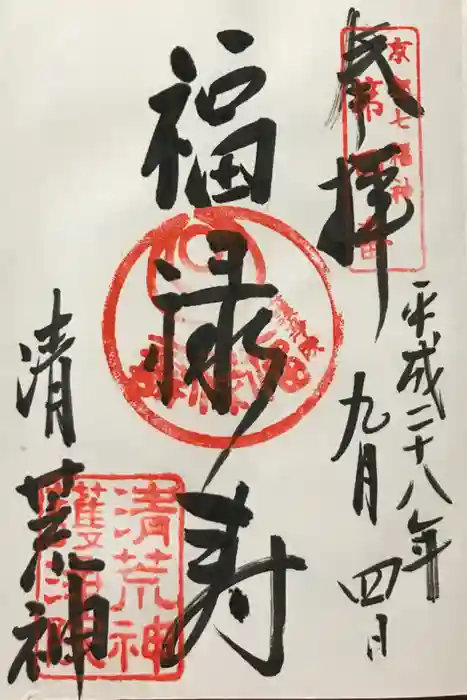 奉拝
京都七福神
第
番
平成二十八年
九月四日
福禄寿
清荒神
清荒神
護浄院